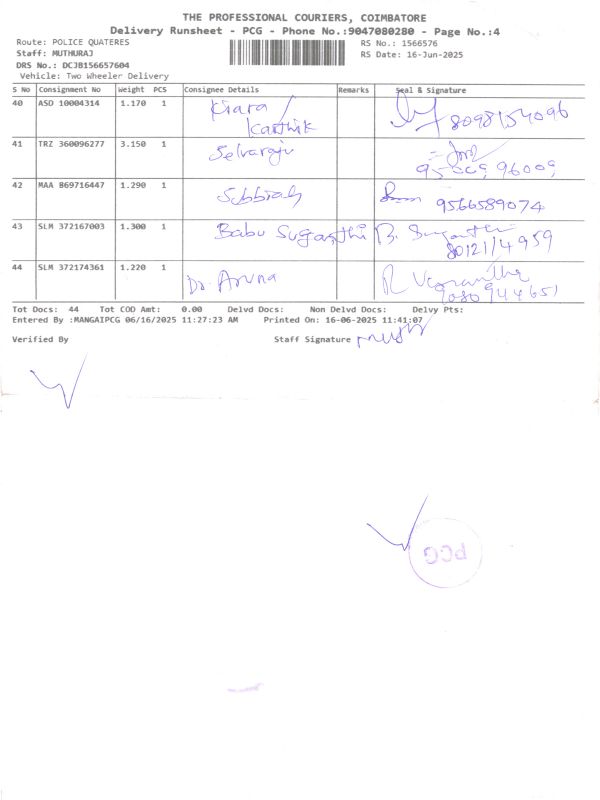 THE PROFESSIONAL COURIERS, COIMBATORE
Delivery Runsheet - PCG - Phone No.:9047080280 - Page No.:4
Route: POLICE QUATERES RS No.: 1566576
Staff: MUTHURAJ RS Date: 16-Jun-2025
DRS No.: DCJB156657604
Vehicle: Two Wheeler Delivery
S No Consignment No Weight PCS Consignee Details Remarks Seal & Signature
40 ASD 10004314 1.170 1 Kiara
Karthik
41 TRZ 360096277 3.150 1 Selvaraju
42 MAA 869716447 1.290 1 Subbiah 9566589074
43 SLM 372167003 1.300 1 Babu Suganthi B. Suganthi
8012114959
44 SLM 372174361 1.220 1 Dr. Aruna
Tot Docs: 44 Tot COD Amt: 0.00 Delvd Docs: Non Delvd Docs: Delvy Pts:
Entered By :MANGAIPCG 06/16/2025 11:27:23 AM Printed On: 16-06-2025 11:41:07
Verified By Staff Signature
PCG